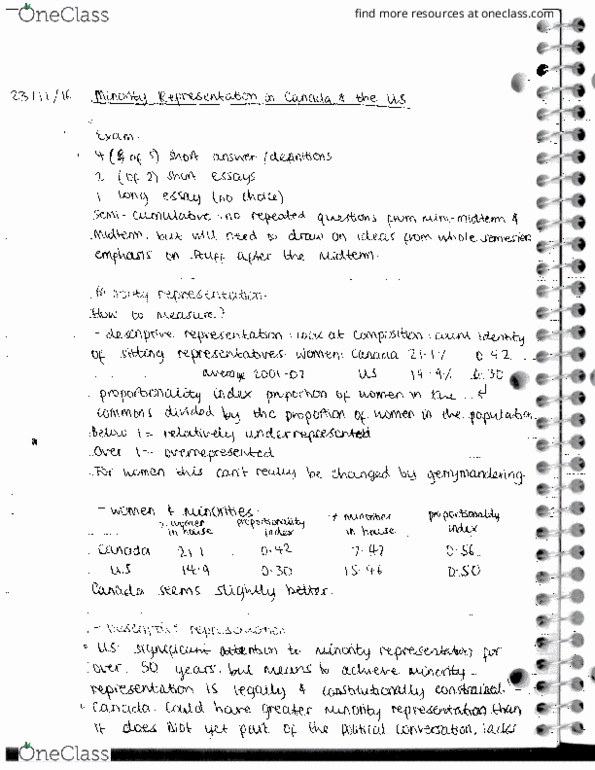 OneClass
find more resources at oneclass.com
23/11/16 Minority Representation in Canada & the US
Exam.
4 ( of 5) short answer/definitions
2 (of 2) short essays
1 long essay (no choice)
Semi-cumulative: no repeated questions from mini-midterm &
Midterm, but will need to draw on ideas from whole semester
emphasis on stuff after the midterm.
Minority representation.
How to measure?
- descriptive representation: look at composition: count identity
of sitting representatives. women: Canada 21.1% 0.42
average 2001-07 US 14.9% 0.30
proportionality index proportion of women in the
commons divided by the proportion of women in the population
Below 1 = relatively underrepresented
Over 1 - overrepresented
For women this can't really be changed by gerrymandering.
- women & minorities.
% women in house proportionality index % minorities in house proportionality index
Canada 21.1 0.42 7.47 0.56
U.S 14.9 0.30 15.46 0.50
Canada seems slightly better.
- Descriptive representation
US: significant attention to minority representation for
over 50 years, but means to achieve minority
representation is legally & constitutionally constrained.
Canada. Could have greater minority representation than
it does. Not yet part of the political conversation, lacks
OneClass